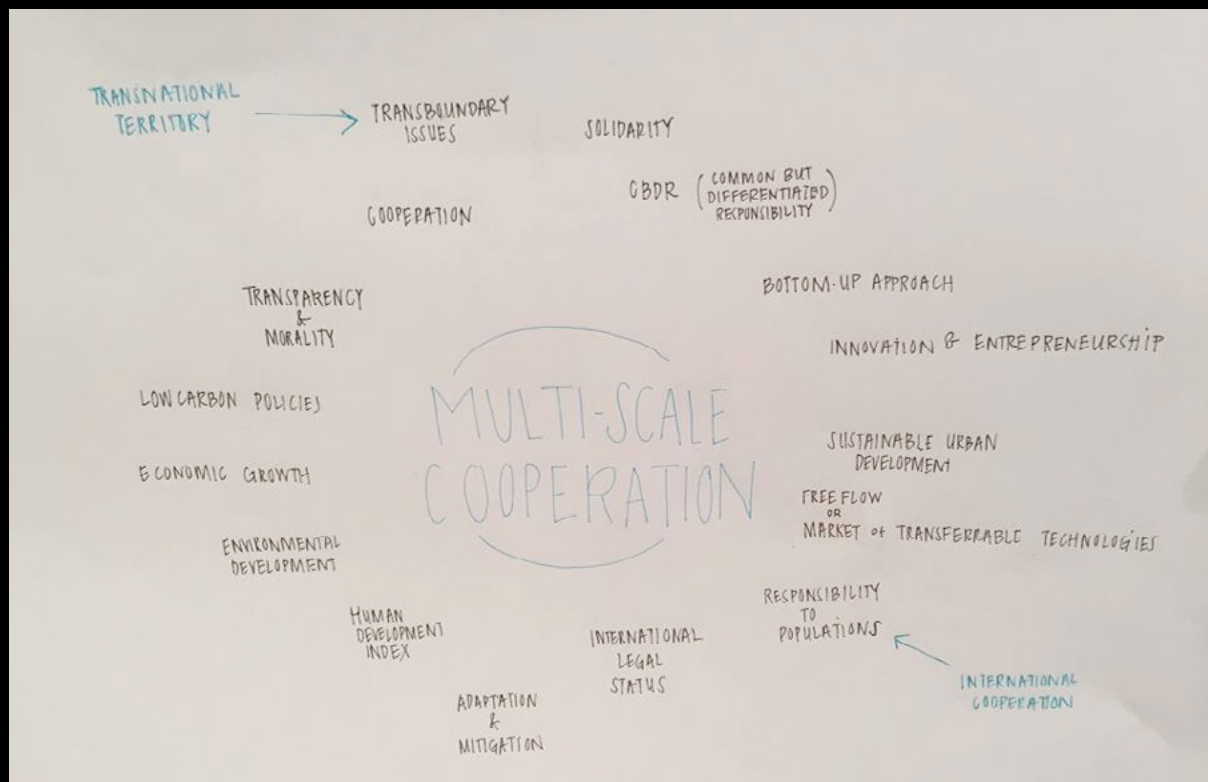 TRANSNATIONAL
TERRITORY
TRANSBOUNDARY
ISSUES
SOLIDARITY
CBDR (COMMON BUT
DIFFERENTIATED
RESPONSIBILITY)
COOPERATION
BOTTOM-UP APPROACH
TRANSPARENCY
&
MORALITY
INNOVATION & ENTREPRENEURSHIP
LOW CARBON POLICIES
MULTI-SCALE
COOPERATION
SUSTAINABLE URBAN
DEVELOPMENT
ECONOMIC GROWTH
FREE FLOW
OR
MARKET of TRANSFERRABLE TECHNOLOGIES
ENVIRONMENTAL
DEVELOPMENT
RESPONSIBILITY
TO
POPULATIONS
HUMAN
DEVELOPMENT
INDEX
INTERNATIONAL
LEGAL
STATUS
INTERNATIONAL
COOPERATION
ADAPTATION
&
MITIGATION